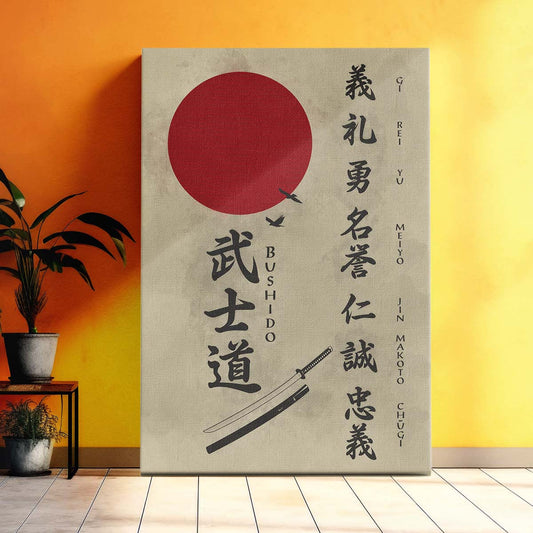 武士道
BUSHIDO
義 礼 勇 名誉 仁 誠 忠義
GI REI YU MEIYO JIN MAKOTO CHŪGI